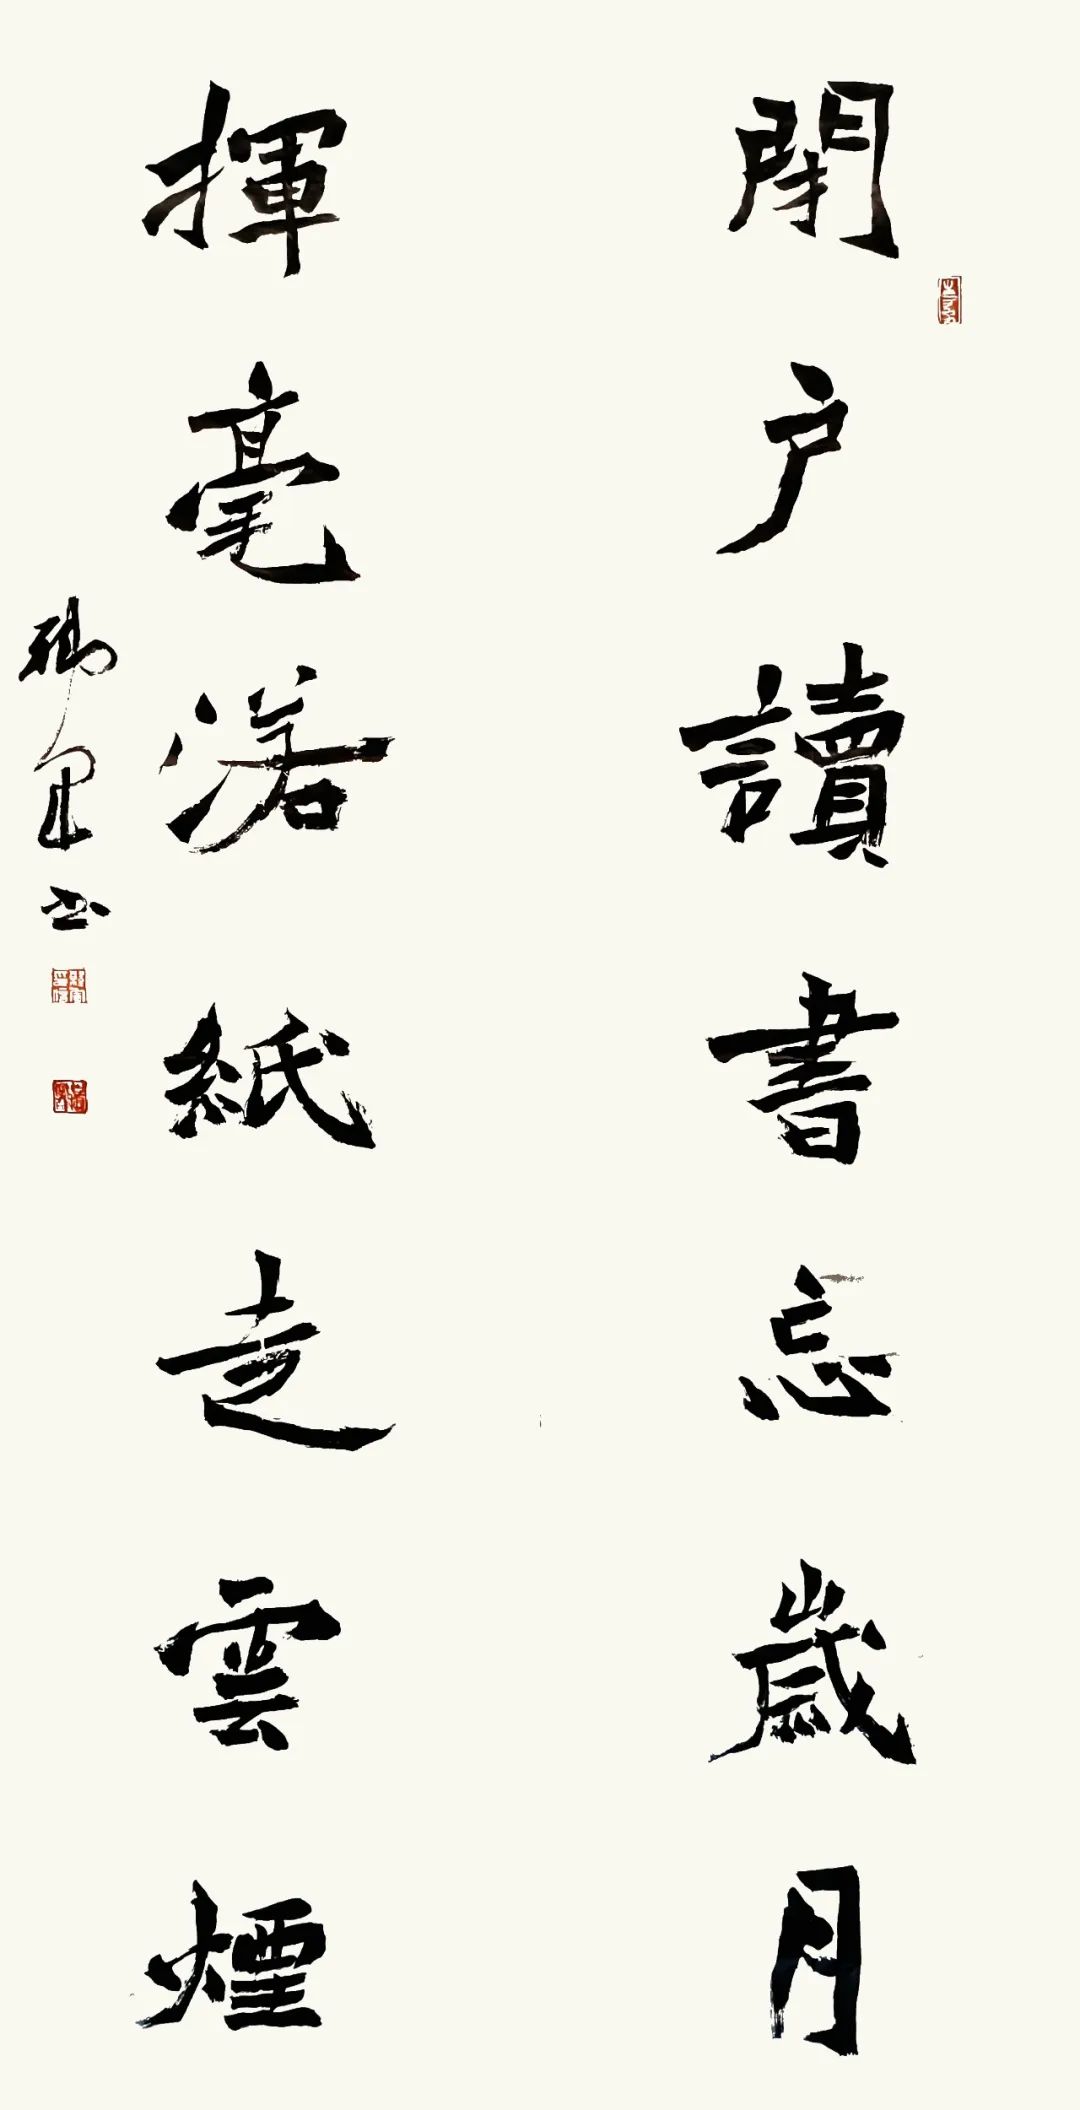 閉户讀書忘歲月
揮毫落紙走雲煙
書